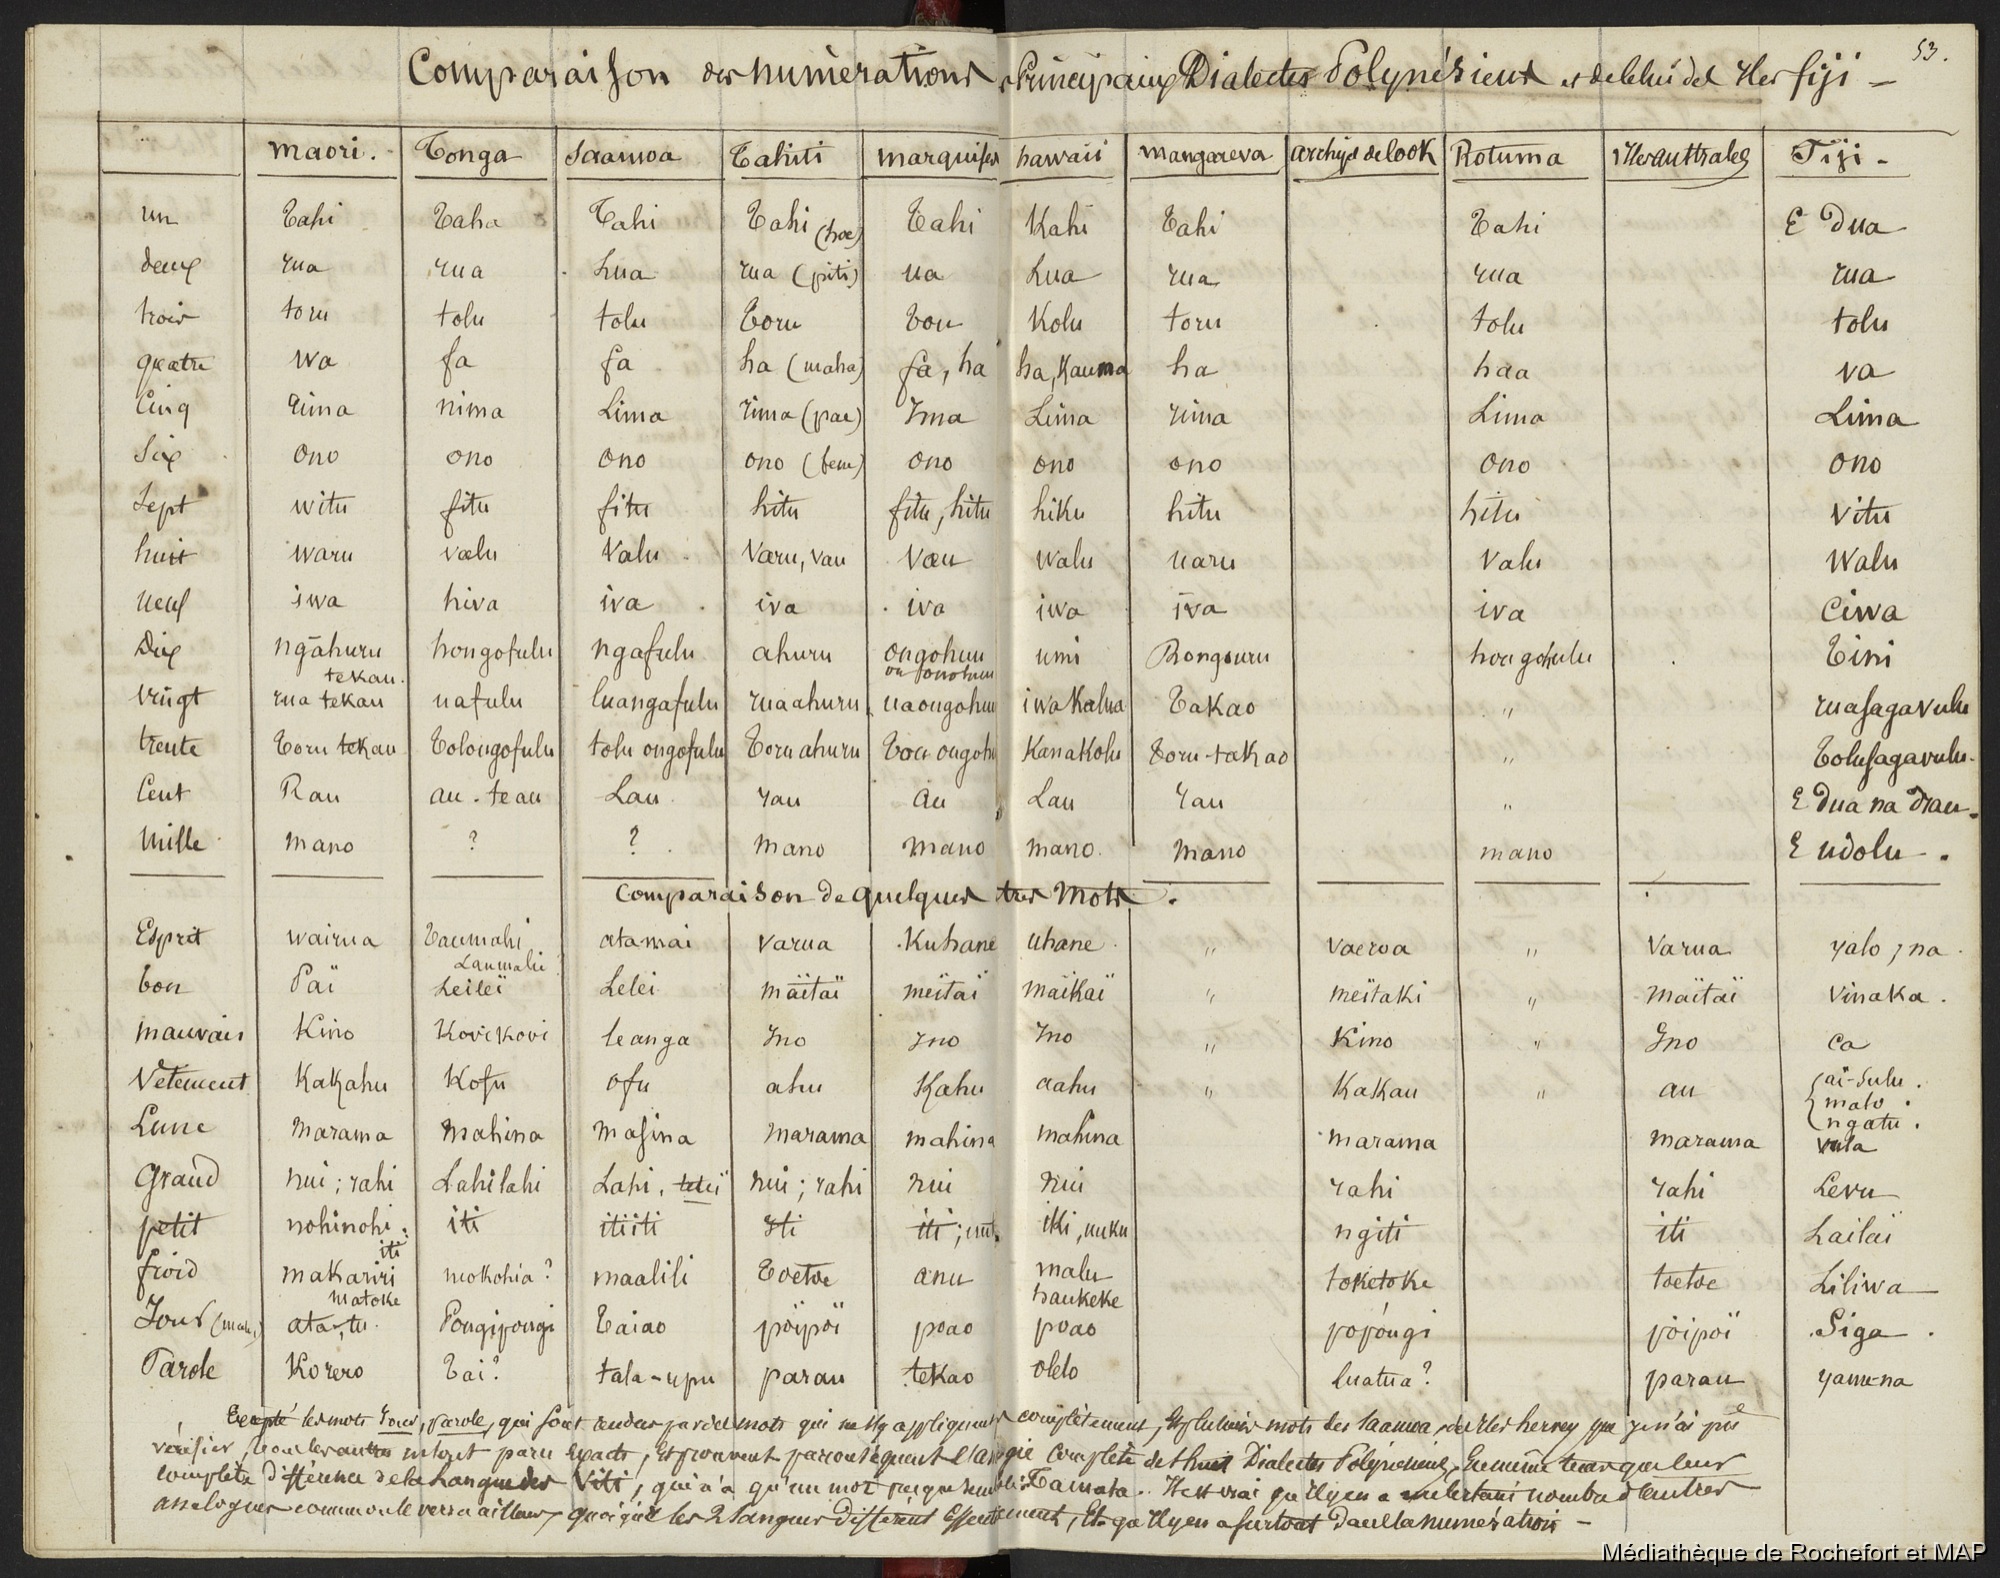 53.
Comparaison des numérations Principaux Dialectes Polynésiens et de celui des Iles fiji —
maori. Tonga Saamoa Tahiti marquises hawaii mangareva archipel de Cook Rotuma Iles australes Fiji -
un Tahi Taha Tahi Tahi (hoe) Tahi Kahi Tahi Tahi E Dua
deux rua rua Lua rua (piti) ua Lua rua rua rua
trois toru tolu tolu Toru Tou Kolu toru tolu tolu
quatre wa fa fa ha (maha) fa, ha ha, Kauna ha haa va
Cinq rima nima Lima rima (pae) Ima Lima rima Lima Lima
Six ono ono ono ono (fene) ono ono ono ono ono
Sept witu fitu fitu hitu fitu, hitu hiku hitu hitu vitu
huit waru valu Valu Varu, vau Vau walu uaru Valu Walu
neuf iwa hiva iva iva iva iwa iva iva Ciwa
Dix ngāhuru hongofulu ngafulu ahuru ongohuu umi Rongouru hongofulu Tini
tekau. ou onohuu
vingt rua tekau uafulu luangafulu rua ahuru uaongohuu iwa Kalua Takao " ruasagavulu
trente Toru tekau Tolongofulu tolu ongofulu Toru ahuru Tou ongohu Kanakolu Toru-takao " Tolusagavulu-
Cent Rau au-teau Lau rau au Lau rau " E Dua na drau-
Mille mano ? ? mano mano mano. mano mano E udolu .
Comparaison de quelques tres Mots .
Esprit wairua Taumahi atamai varua Kuhane uhane " vaeroa " varua yalo, na
Laumalie
bon Païï Leileï Lelei maïtaï meïtaï maïkaï " meïtaki " maïtaï vinaka .
mauvais Kino Kovikovi leanga Ino Ino Ino " Kino " Ino ca
Vêtement Kakahu Kofu ofu ahu Kahu aahu " Kakau " au ai-sulu .
malo .
ngatu .
Lune marama mahina masina marama mahina mahina marama marama vula
Grand nui; rahi Lahilahi Lahi, nui; rahi nui nui rahi rahi Levu
petit nohinohi; iti itiiti Iti iti; iki, uuku ngiti iti Lailaï
iti
froid makariri mokohia? maalili Toetoe anu malu toketoke toetoe Liliwa
matoke haukeke
Jour ata, tu Pongipongi Taiao pöïpöï poao poao popóngi pöipoï Siga .
Parole Korero Tai? tala-upu parau tekao olelo luatua? parau yamena
Excepté les mots Jour, parole, qui sont rendus par des mots qui ne s'y appliquent complètement, et plusieurs mots des Saamoa et des Iles hervey que je n'ai pu
vérifier, tous les autres m'ont paru Exacts, Et prouvent par conséquent l'analogie Complète des huit Dialectes Polynésiens, En même temps que leur
complète différence de la Langue des Viti, qui n'a qu'un mot presque semblable: Tamata. Il est vrai qu'il y en a un certain nombre d'autres
analogues comme on le verra ailleurs, quoique les 2 langues diffèrent Essentiellement, Et qu'il y en a surtout dans la numération —
Médiathèque de Rochefort et MAP